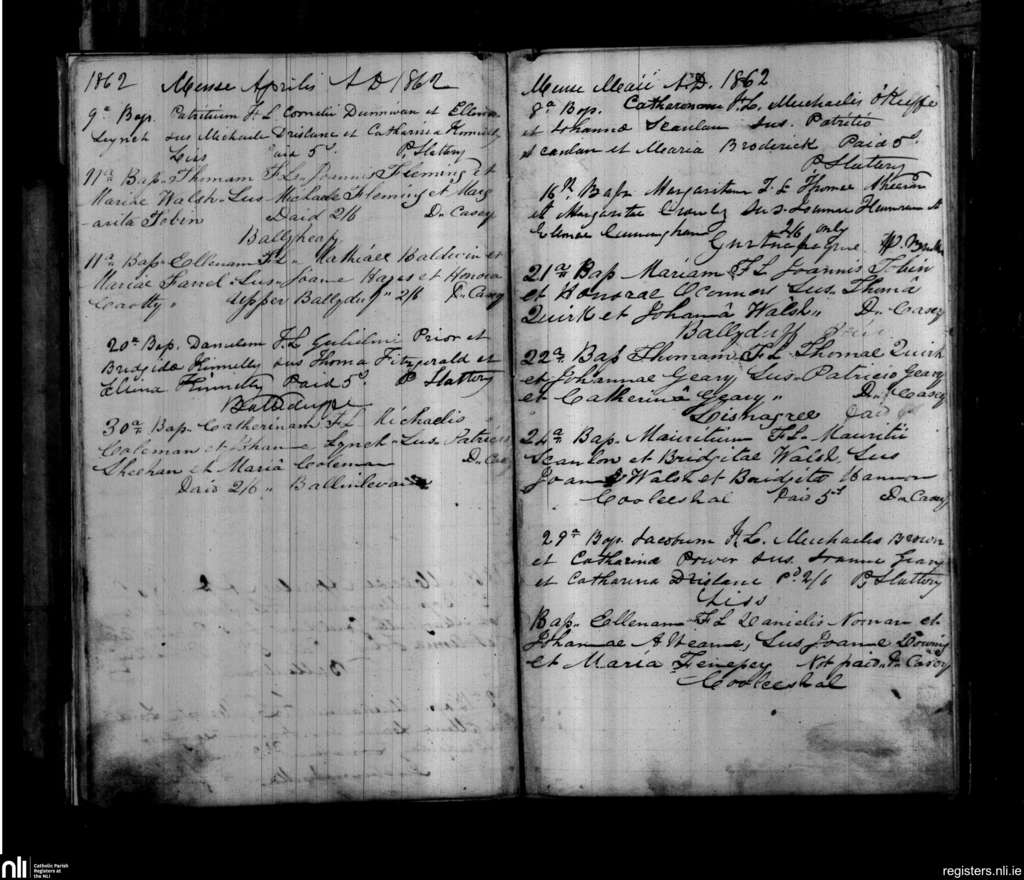 1862 Mense Aprilis A D 1862
9a Bap. Patritium F L Cornelii Dunnivan et Ellena
Lynch sus Michaele Drislane et Catharina
Liss Paid 5s P. Slattery
11a Bap. Thomam F L Joannis Fleming et
Mariae Walsh Sus Michaele Fleming et Marg
arita Tobin Paid 2/6 D. Casey
Ballyheafy
11a Bap. Ellenam F L Baldwin et
Mariae Farrel Sus Joanne Hayes et Honora
Upper Ballyduff 2/6 D. Casey
20a Bap. Danielem F L Gulielmi Prior et
Bridgida Kinnelly sus Thoma Fitzgerald et
Elena Paid 5s P Slattery
Ballyduffe
30a Bap. Catherinam F L Michaelis
Coleman et Lynch Sus Patricio
Sheehan et Maria Coleman D. Cas
Paid 2/6
Mense Maii A.D. 1862
8a Bap. F. L. Michaelis O'Keeffe
et Johanna Scanlan sus. Patritio
Scanlan et Maria Broderick Paid 5s
P Slattery
16a Bap. Margaritam F L Thomae
et Margarita Crowly sus
et Cunningham 2/6 only
21a Bap Mariam F L Joannis Tobin
et Honorae O'Connors Sus Thoma
Quirk et Johanâ Walsh D. Casey
Ballyduff
22a Bap Thomam F L Thomae Quirk
et Johannae Geary Sus Patricio Geary
et Catherinâ Geary D. Casey
Lisnagree
24a Bap. Mauritium F L Mauritii
Scanlon et Bridgitae Walsh Sus
Walsh et Bridgita Hannon
Cooleeshal Paid 5s D. Casey
29a Bap. Jacobum F L. Michaelis Brown
et Catharina Power sus. Joanne Geary
et Catharina Drislane Pd 2/6 P Slattery
Liss
Bap. Ellenam F L Danielis Noonan et
Johannae Ahearne, Sus Joanne
et Maria Not paid D. Casey
Cooleeshal
nli Catholic Parish
Registers at
the NLI
registers.nli.ie